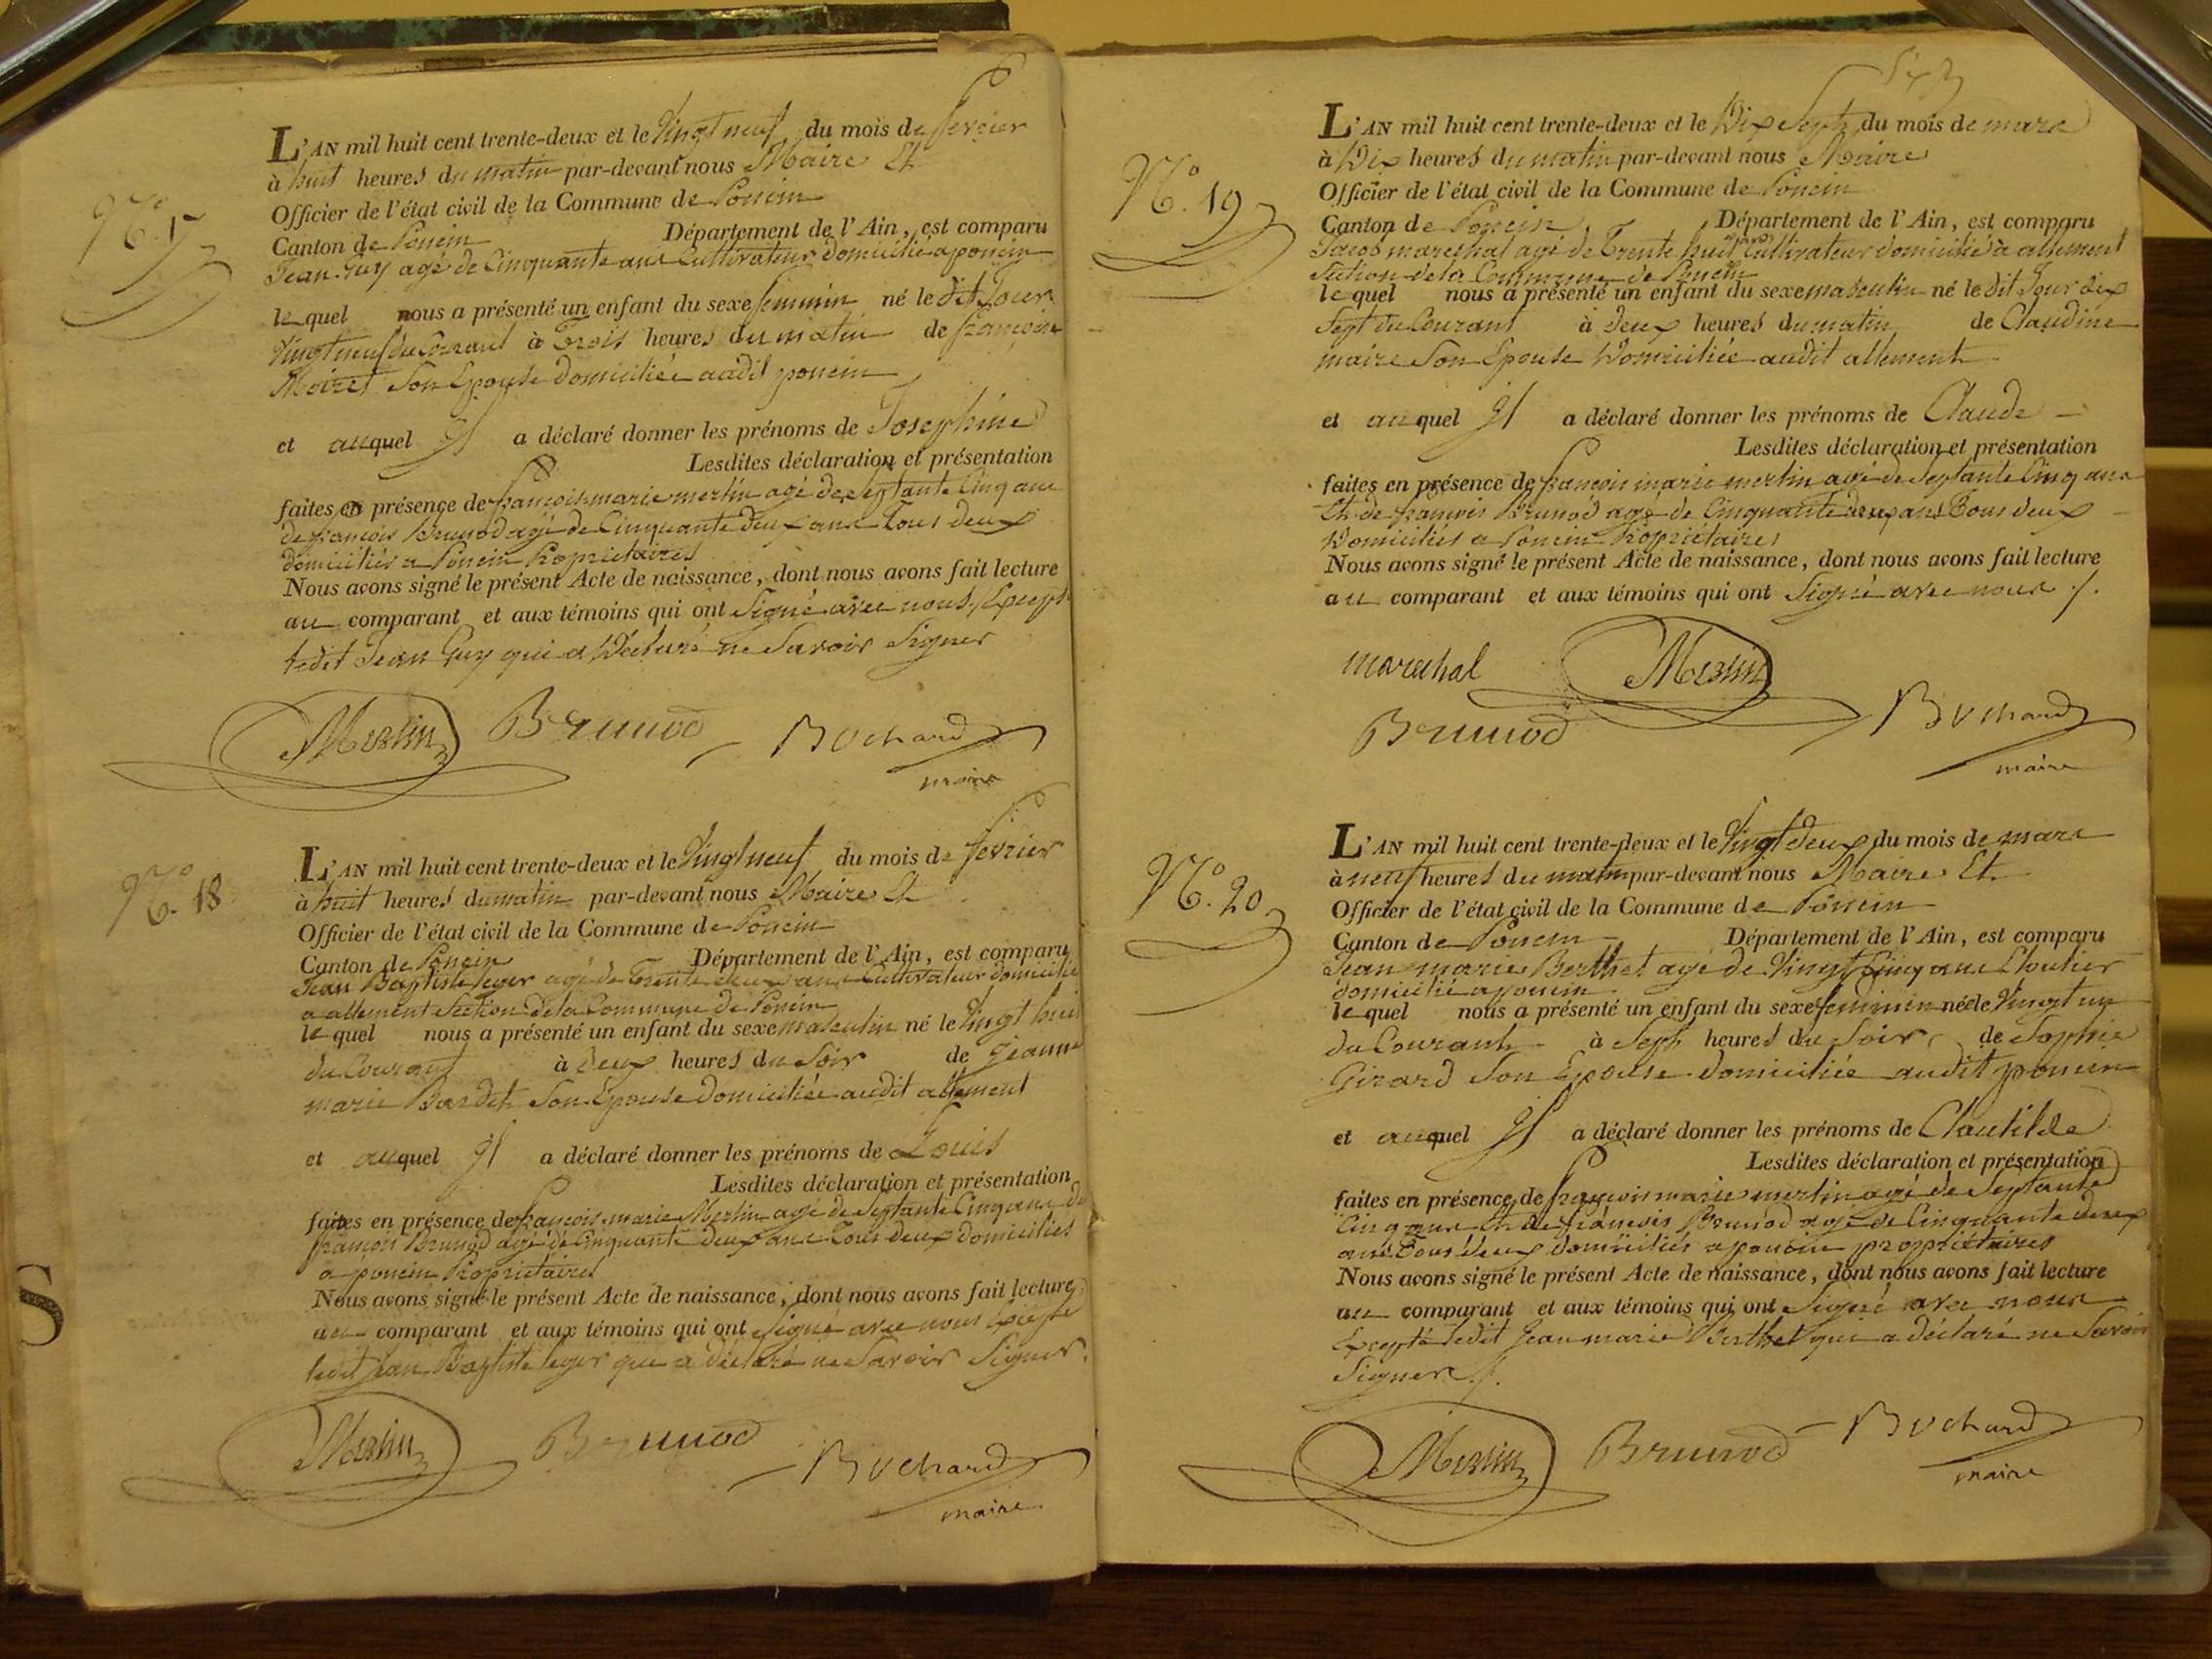 L'AN mil huit cent trente-deux et le Vingt neuf du mois de fevrier
à huit heures du matin par-devant nous Maire Et
Officier de l'état civil de la Commune de Poncin
Canton de Poncin Département de l'Ain, est comparu
Jean Guy agé de Cinquante ans Cultivateur domicilié a poncin
lequel nous a présenté un enfant du sexe feminin né le dit Jour
Vingt neuf du Courant à Trois heures du matin de françoise
Moiret Son Epouse domiciliée audit poncin
et auquel Il a déclaré donner les prénoms de Josephine
Lesdites déclaration et présentation
faites en présence de françois marie merlin agé de Septante Cinq ans
de françois Brunod agé de Cinquante deux ans Tous deux
domiciliés a Poncin Propriétaires
Nous avons signé le présent Acte de naissance, dont nous avons fait lecture
au comparant et aux témoins qui ont Signé avec nous, Except
ledit Jean Guy qui a Déclaré ne Savoir Signer
Merlin Brunod Bochard
maire
N.° 18
L'AN mil huit cent trente-deux et le Vingt neuf du mois de fevrier
à huit heures du matin par-devant nous Maire Et
Officier de l'état civil de la Commune de Poncin
Canton de Poncin Département de l'Ain, est comparu
Jean Baptiste leger agé de Trente deux ans Cultivateur domicilié
a allement Section de la Commune de Poncin
lequel nous a présenté un enfant du sexe masculin né le Vingt huit
du Courant à deux heures du Soir de Jeanne
marie Bardet Son Epouse domiciliée audit allement
et auquel Il a déclaré donner les prénoms de Louis
Lesdites déclaration et présentation
faites en présence de françois marie Merlin agé de Septante Cinq ans de
françois Brunod agé de Cinquante deux ans Tous deux domiciliés
a poncin Propriétaires
Nous avons signé le présent Acte de naissance, dont nous avons fait lecture
au comparant et aux témoins qui ont Signé avec nous Excepté
ledit Jean Baptiste leger qui a déclaré ne Savoir Signer.
Merlin Brunod Bochard
maire
S
N.° 19
L'AN mil huit cent trente-deux et le Dix Sept du mois de mars
à Dix heures du matin par-devant nous Maire
Officier de l'état civil de la Commune de Poncin
Canton de Poncin Département de l'Ain, est comparu
Jacob mareshal agé de Trente huit ans Cultivateur domicilié à allement
Section de la Commune de Poncin
lequel nous a présenté un enfant du sexe masculin né le dit Jour dix
Sept du Courant à deux heures du matin de Claudine
maire Son Epouse Domiciliée audit allement
et auquel Il a déclaré donner les prénoms de Claude
Lesdites déclaration et présentation
faites en présence de françois marie merlin agé de Septante Cinq ans
Et de françois Brunod agé de Cinquante deux ans Tous deux
Domiciliés a Poncin Propriétaires
Nous avons signé le présent Acte de naissance, dont nous avons fait lecture
au comparant et aux témoins qui ont Signé avec nous /.
mareshal Merlin
Brunod Bochard
maire
N.° 20
L'AN mil huit cent trente-deux et le Vingt deux du mois de mars
à neuf heures du matin par-devant nous Maire Et
Officier de l'état civil de la Commune de Poncin
Canton de Poncin Département de l'Ain, est comparu
Jean marie Berthet agé de Vingt Cinq ans Cloutier
domicilié a poncin
lequel nous a présenté un enfant du sexe feminin né le Vingt un
du Courant à Sept heures du Soir de Sophie
Girard Son Epouse domiciliée audit poncin
et auquel Il a déclaré donner les prénoms de Clautilde
Lesdites déclaration et présentation
faites en présence de françois marie merlin agé de Septante
Cinq ans Et de françois Brunod agé de Cinquante deux
ans Tous deux domiciliés a poncin propriétaires
Nous avons signé le présent Acte de naissance, dont nous avons fait lecture
au comparant et aux témoins qui ont Signé avec nous
Excepté ledit Jean marie Berthet qui a déclaré ne Savoir
Signer /.
Merlin Brunod Bochard
maire